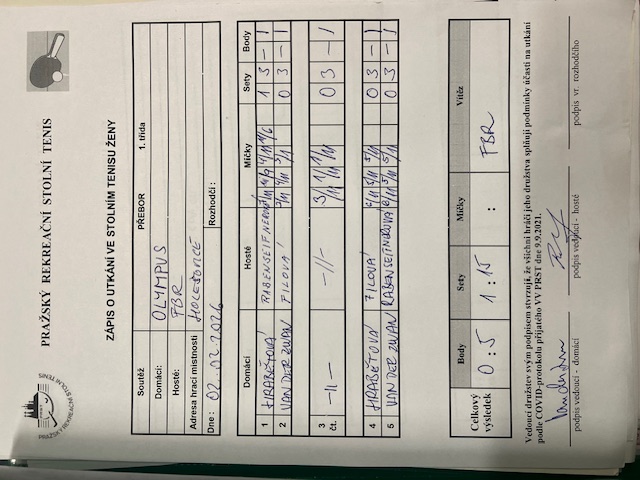 PRAŽSKÝ REKREAČNÍ STOLNÍ TENIS
ZÁPIS O UTKÁNÍ VE STOLNÍM TENISU ŽENY
Soutěž PŘEBOR 1. třída
Domácí: OLYMPUS
Hosté: FBR
Adresa hrací místnosti HOLEŠOVICE
Dne: 02.02.2026 Rozhodčí:
Domácí Hosté Míčky Sety Body
1 HRABĚTOVÁ RABENSEIFNEROVÁ 1 3 - 1
2 VAN DER ZWAN PILOVÁ 0 3 - 1
3 čt. -11- -11- 0 3 - 1
4 HRABĚTOVÁ PILOVÁ 0 3 - 1
5 VAN DER ZWAN RABENSEIFNEROVÁ 0 3 - 1
Celkový výsledek Body Sety Míčky Vítěz
0 : 5 1 : 15 : FBR
Vedoucí družstev svým podpisem stvrzují, že všichni hráči jeho družstva splňují podmínky účasti na utkání
podle COVID-protokolu přijatého VV PRST dne 9.9.2021.
podpis vedoucí - domácí podpis vedoucí - hosté podpis vr. rozhodčího